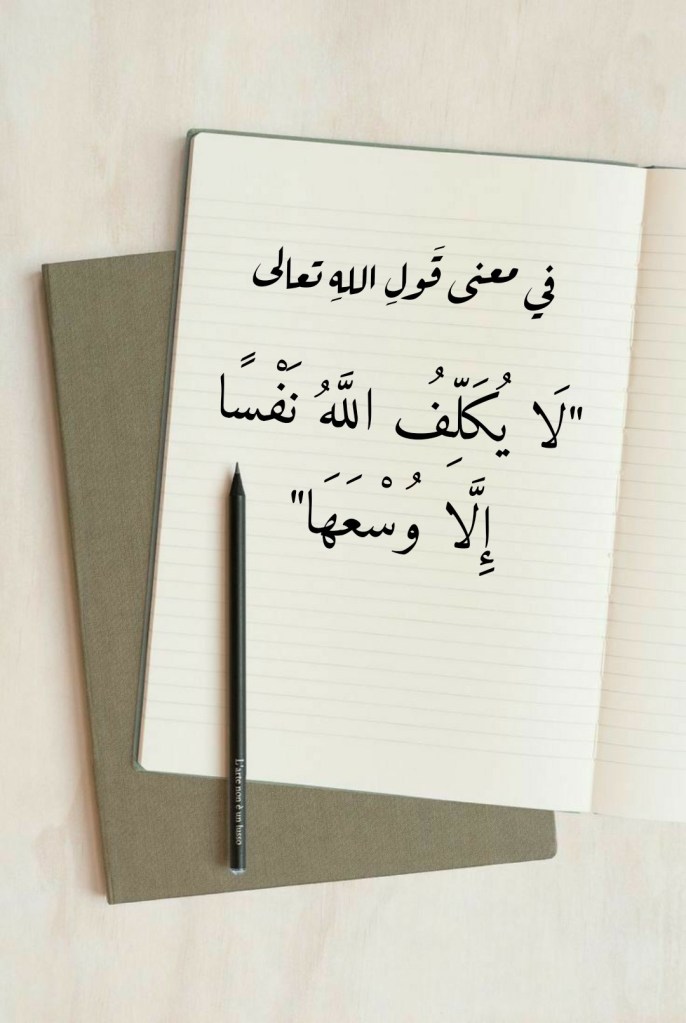 في معنى قَولِ اللهِ تعالى
"لَا يُكَلِّفُ اللَّهُ نَفْسًا
إِلَّا وُسْعَهَا"
L'arte non è un lusso